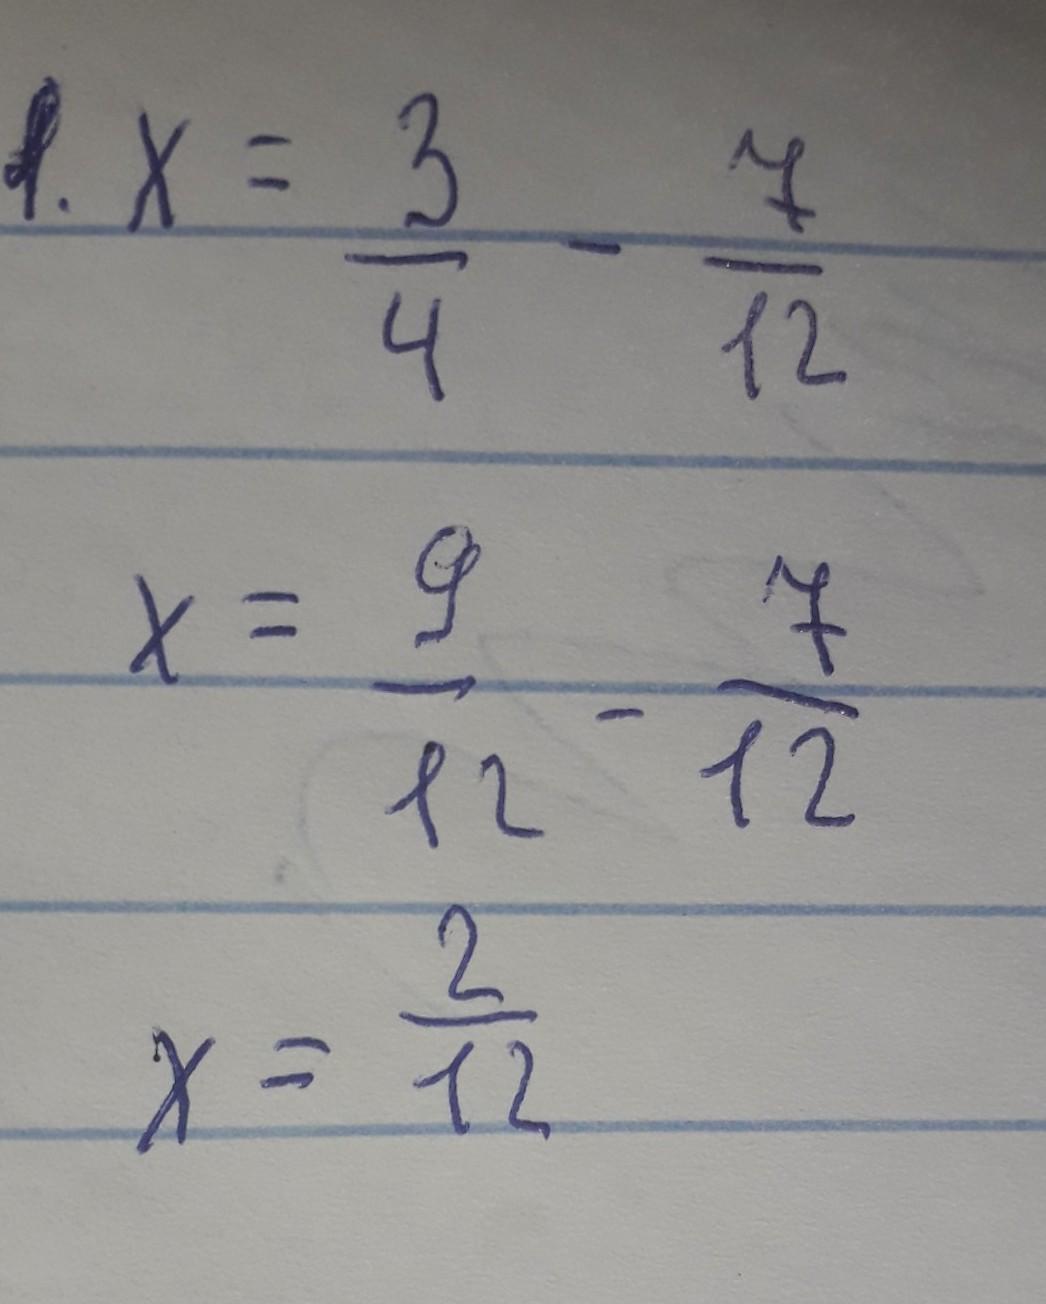 1. x = 3/4 - 7/12
x = 9/12 - 7/12
x = 2/12